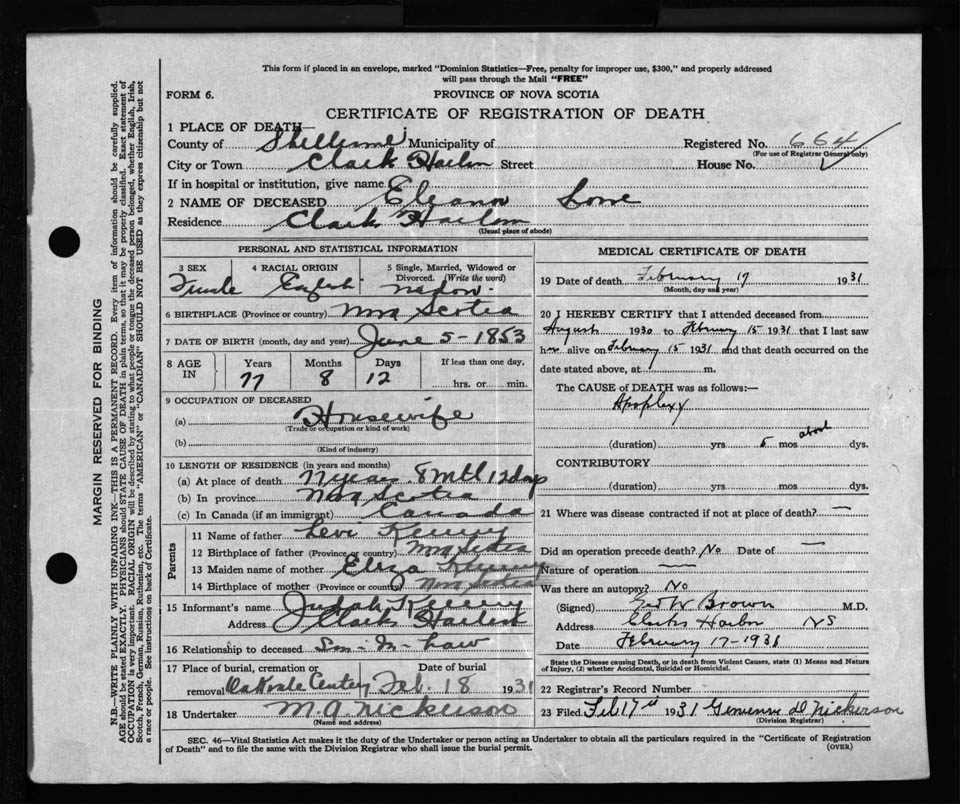 This form if placed in an envelope, marked "Dominion Statistics—Free, penalty for improper use, $300," and properly addressed
will pass through the Mail "FREE"
FORM 6.
PROVINCE OF NOVA SCOTIA
CERTIFICATE OF REGISTRATION OF DEATH
1 PLACE OF DEATH—
County of Shelburne Municipality of Registered No. 664
(For use of Registrar General only)
City or Town Clark Harbor Street House No.
If in hospital or institution, give name
2 NAME OF DECEASED Eleanor
Residence Clark Harbor
(Usual place of abode)
PERSONAL AND STATISTICAL INFORMATION
3 SEX 4 RACIAL ORIGIN 5 Single, Married, Widowed or Divorced. (Write the word)
Female English Widow
6 BIRTHPLACE (Province or country) Nova Scotia
7 DATE OF BIRTH (month, day and year) June 5-1853
8 AGE IN Years Months Days If less than one day,
77 8 12 hrs. or min.
9 OCCUPATION OF DECEASED
(a) Housewife
(Trade or occupation or kind of work)
(b)
(Kind of industry)
10 LENGTH OF RESIDENCE (in years and months)
(a) At place of death 77 years 8 mth 12 days
(b) In province Nova Scotia
(c) In Canada (if an immigrant) Canada
Parents
11 Name of father Levi Kenney
12 Birthplace of father (Province or country) Nova Scotia
13 Maiden name of mother Eliza Kenney
14 Birthplace of mother (Province or country) Nova Scotia
15 Informant's name Judah Kenney
Address Clarks Harbor
16 Relationship to deceased Son-In-Law
17 Place of burial, cremation or Date of burial
removal Cemetery Feb. 18 1931
18 Undertaker M. A. Nickerson
(Name and address)
MEDICAL CERTIFICATE OF DEATH
19 Date of death February 17 1931
(Month, day and year)
20 I HEREBY CERTIFY that I attended deceased from
August 1930 to February 15 1931 that I last saw
her alive on February 15 1931 and that death occurred on the
date stated above, at m.
The CAUSE of DEATH was as follows:—
Apoplexy
about
(duration) yrs 5 mos dys.
CONTRIBUTORY
(duration) yrs. mos. dys.
21 Where was disease contracted if not at place of death? —
Did an operation precede death? No Date of —
Nature of operation —
Was there an autopsy? No
(Signed) Geo W Brown M.D.
Address Clarks Harbor NS
Date February 17-1931
State the Disease causing Death, or in death from Violent Causes, state (1) Means and Nature
of Injury, (2) whether Accidental, Suicidal or Homicidal.
22 Registrar's Record Number
23 Filed Feb 17th 1931 D. Nickerson
(Division Registrar)
SEC. 46—Vital Statistics Act makes it the duty of the Undertaker or person acting as Undertaker to obtain all the particulars required in the "Certificate of Registration
of Death" and to file the same with the Division Registrar who shall issue the burial permit.
(OVER)
MARGIN RESERVED FOR BINDING
N.B.—WRITE PLAINLY WITH UNFADING INK—THIS IS A PERMANENT RECORD. Every item of information should be carefully supplied.
AGE should be stated EXACTLY. PHYSICIANS should STATE CAUSE OF DEATH in plain terms, so that it may be properly classified. Exact statement of
OCCUPATION is very important. RACIAL ORIGIN will be described by stating to what people or tongue the deceased person belonged, whether English, Irish,
Scotch, French, German, Russian, Ruthenian, etc. The terms "AMERICAN" or "CANADIAN" SHOULD NOT BE USED as they express citizenship but not
a race or people. See instructions on back of Certificate.